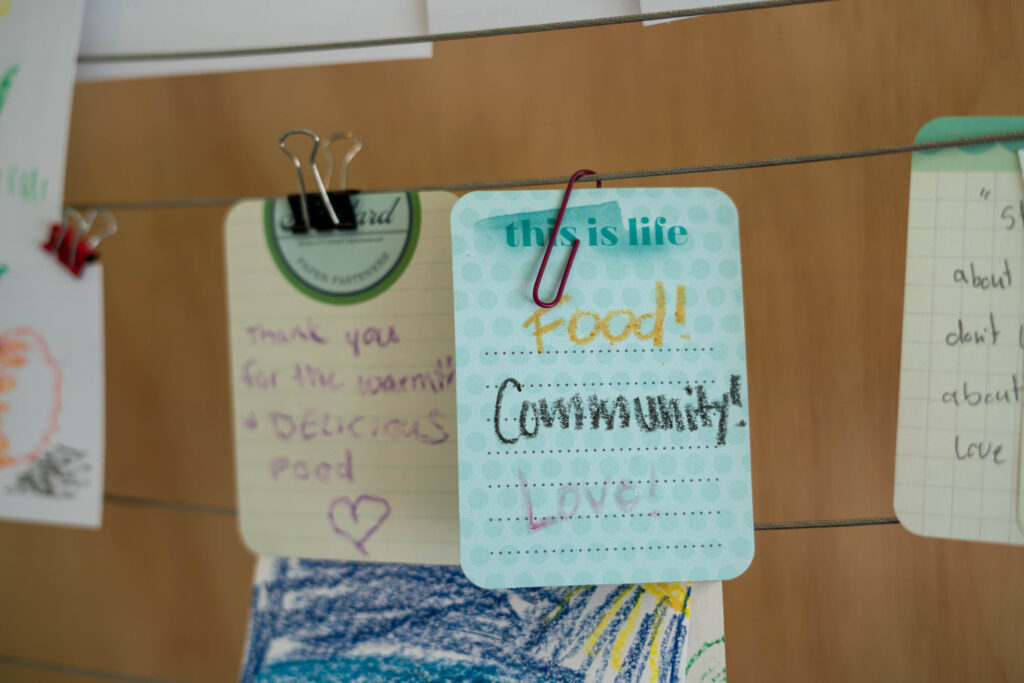 PAPER FASTENERS
Thank you
for the warmth
+ DELICIOUS
FOOD
this is life
Food!
Community!
Love!
about
don't
about
Love